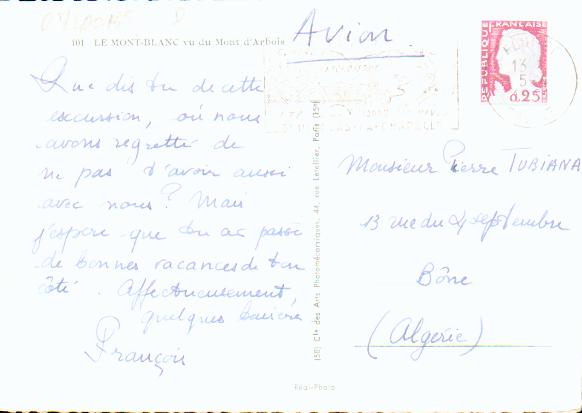 101 LE MONT-BLANC vu du Mont d'Arbois
Avion
REPUBLIQUE FRANÇAISE
13
5
0,25
Que dis tu de cette
excursion, où nous
avons regretter de
ne pas t'avoir aussi
avec nous? Mais
j'espère que tu as passé
de bonnes vacances de ton
côté. Affectueusement,
quelques
François
(58) Cie des Arts Photomécaniques, 44, rue Letellier, Paris (15e)
Monsieur Pierre TUBIANA
13 rue du 4 septembre
Bône
(Algérie)
Réal-Photo